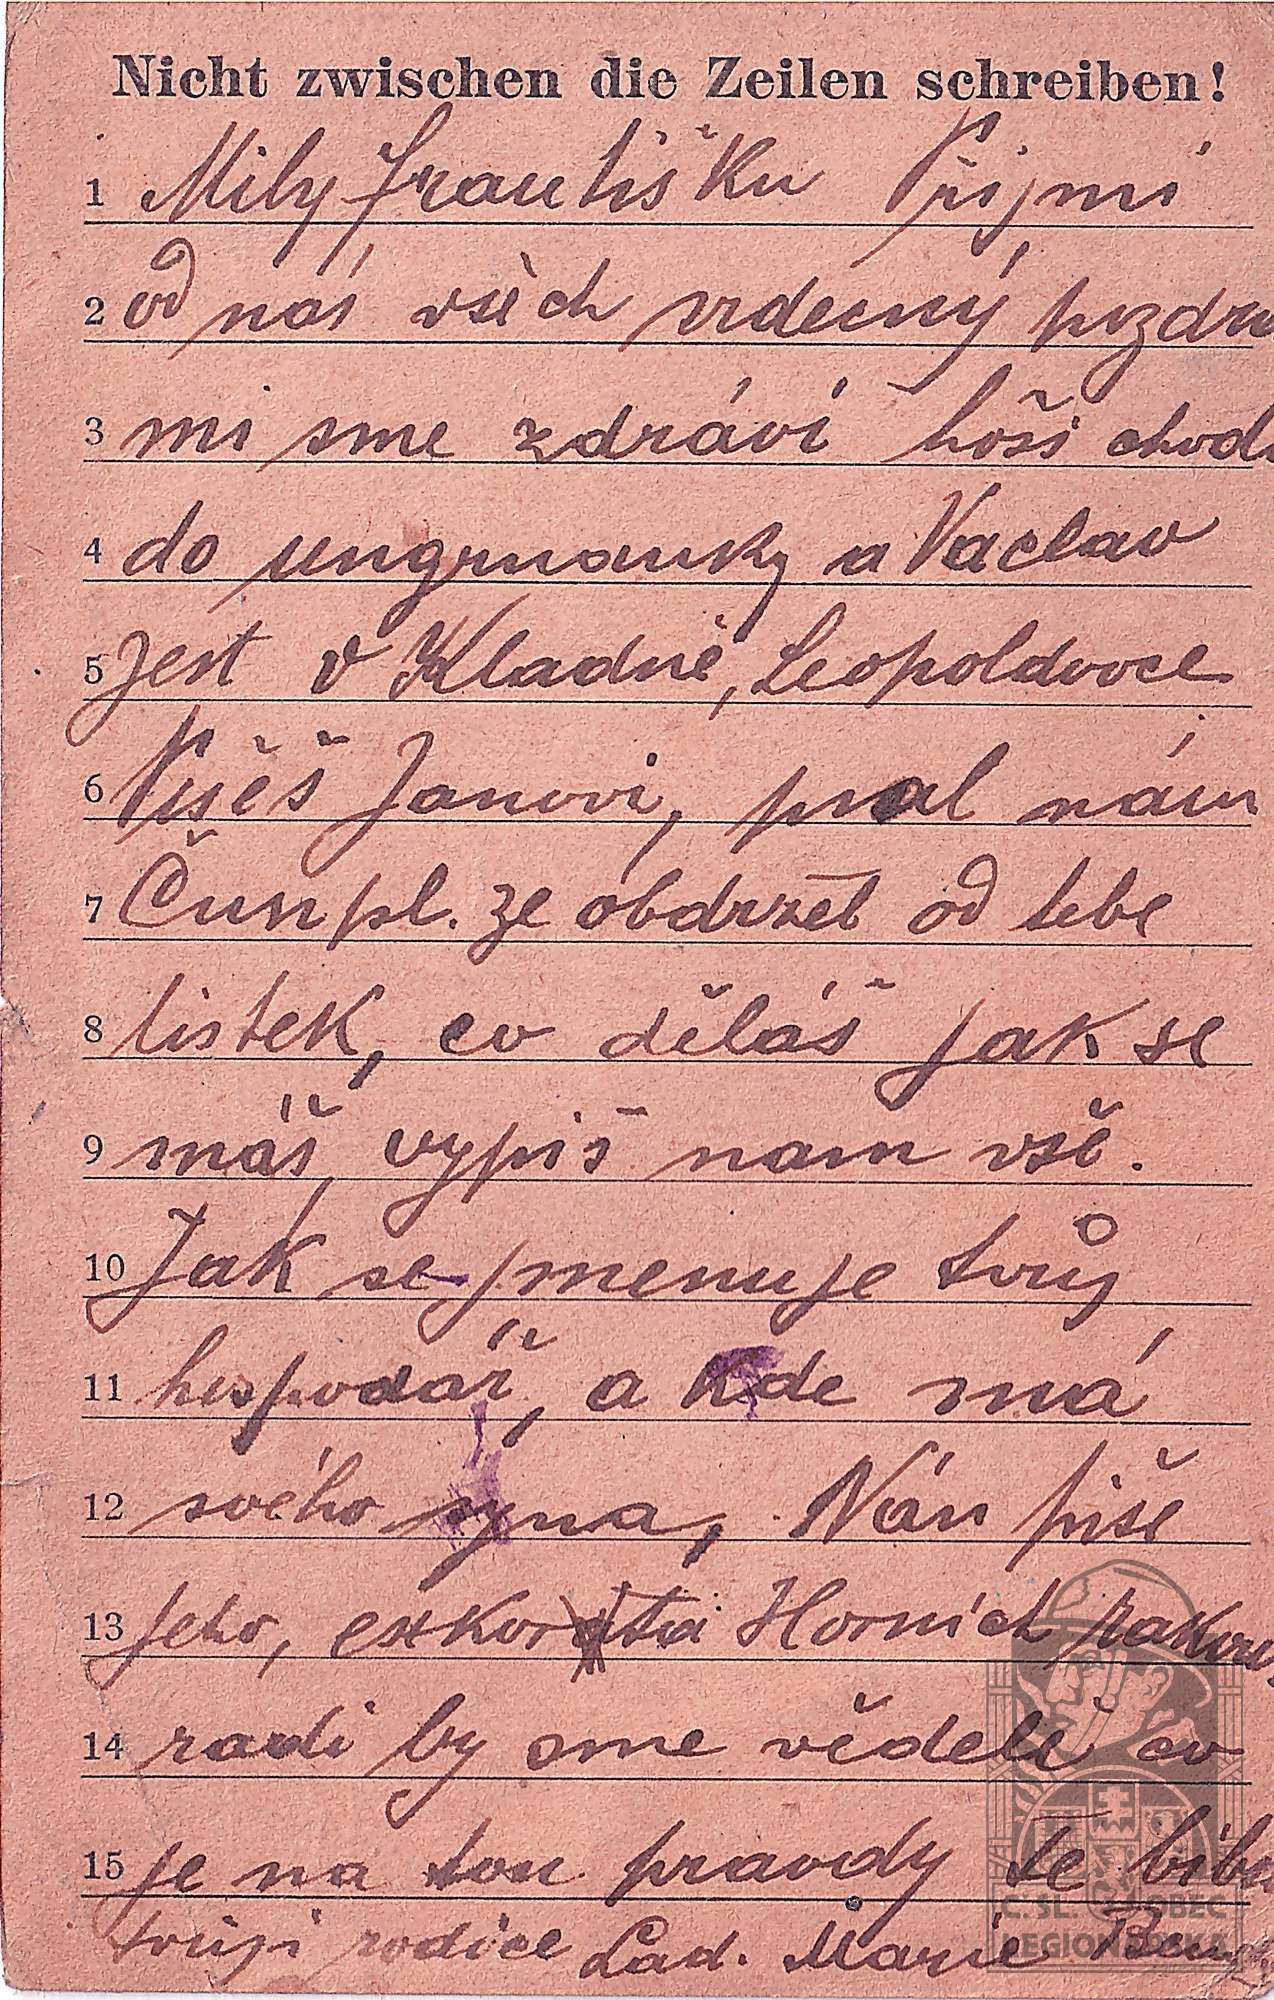 Nicht zwischen die Zeilen schreiben!
1 Milý Františku Přijmi
2 od nás všech srdečný pozdra
3 mi sme zdrávi hoši chodi
4 do a Vaclav
5 jest v Kladně, Leopoldvoce
6 Píšěš Janovi, psal nám
7 že obdržel od tebe
8 listek, co děláš jak se
9 máš, vypiš nam vše.
10 Jak se jmenuje tvůj
11 hospodář, a kde má
12 svého syna, Nán piše
13 jeho, Horních rakous
14 radi by sme věděli co
15 je na tom pravdy te
tvůji rodiče Lad. Marie
Č. SL. OBEC
LEGIONÁŘSKÁ